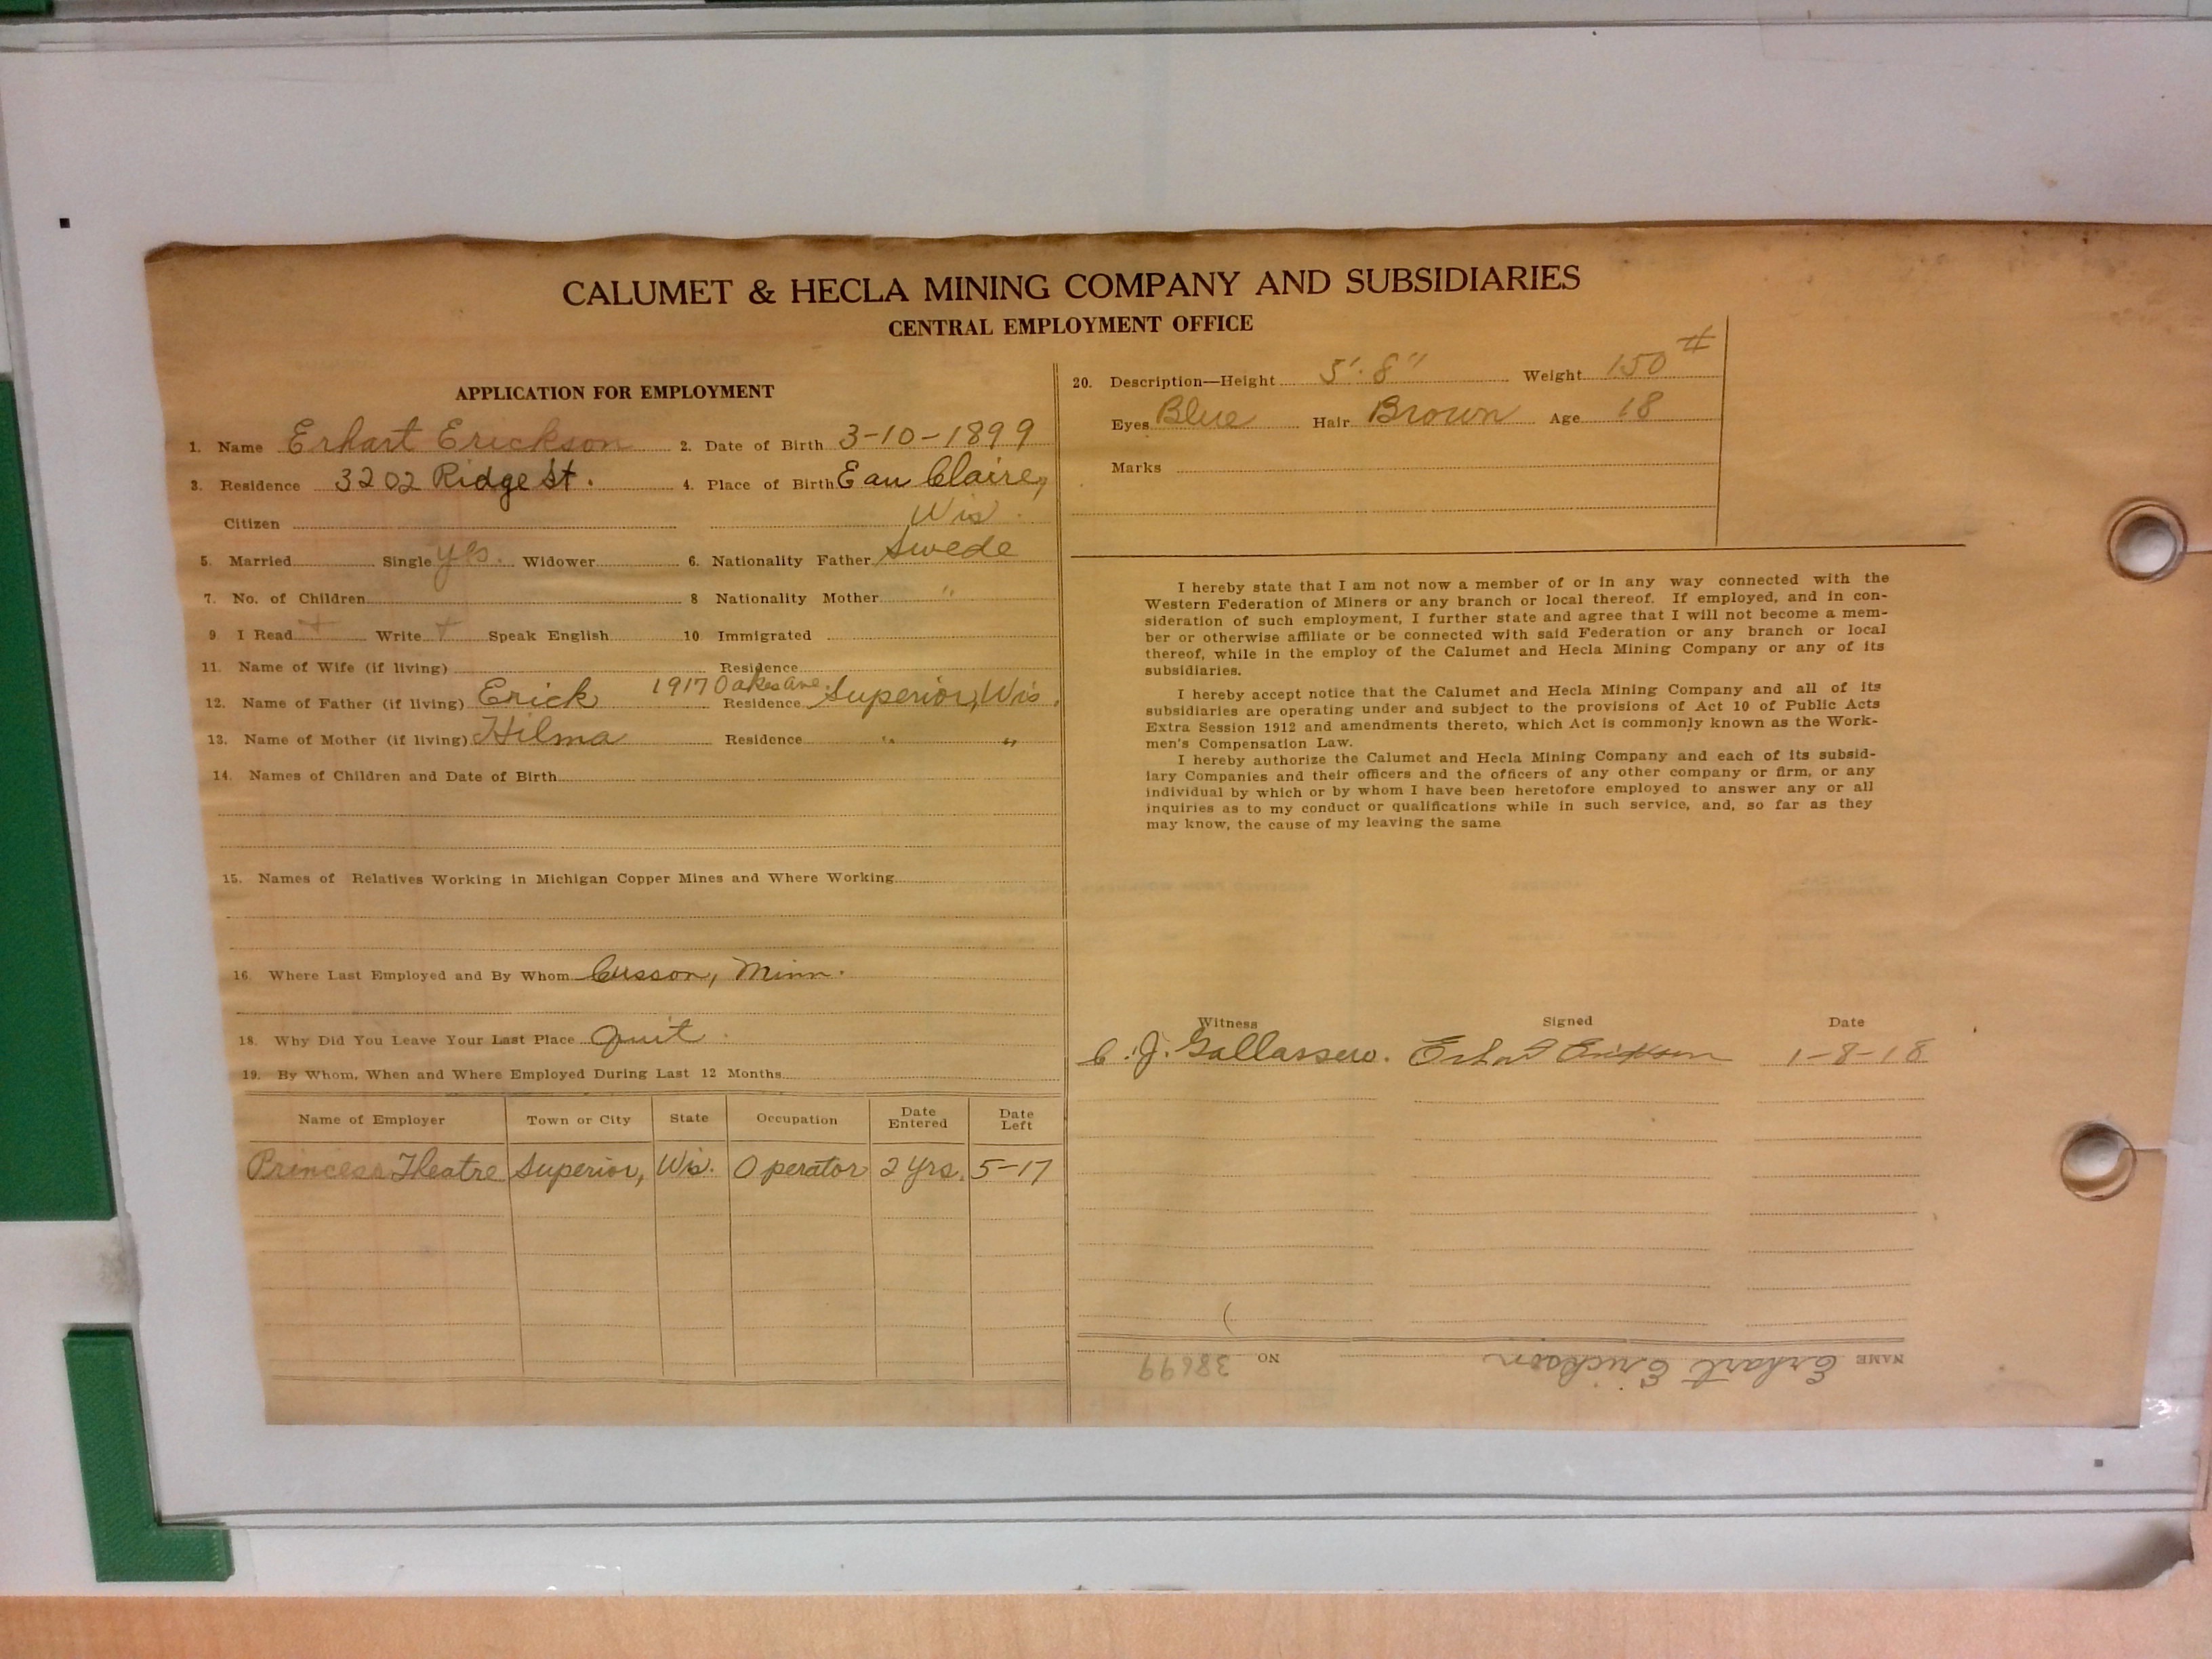 CALUMET & HECLA MINING COMPANY AND SUBSIDIARIES
CENTRAL EMPLOYMENT OFFICE
APPLICATION FOR EMPLOYMENT
1. Name Erhart Erickson 2. Date of Birth 3-10-1899
3. Residence 3202 Ridge St. 4. Place of Birth Eau Claire,
Citizen Wis
5. Married Single yes. Widower 6. Nationality Father Swede
7. No. of Children 8 Nationality Mother "
9. I Read + Write + Speak English 10. Immigrated
11. Name of Wife (if living) Residence
12. Name of Father (if living) Erick Residence 1917 Oakes Ave. Superior, Wis.
13. Name of Mother (if living) Hilma Residence " "
14. Names of Children and Date of Birth
15. Names of Relatives Working in Michigan Copper Mines and Where Working
16. Where Last Employed and By Whom Cusson, Minn.
18. Why Did You Leave Your Last Place Quit.
19. By Whom, When and Where Employed During Last 12 Months
Name of Employer Town or City State Occupation Date Entered Date Left
Princess Theatre Superior, Wis. Operator 2 yrs. 5-17
20. Description—Height 5'.8" Weight 150 #
Eyes Blue Hair Brown Age 18
Marks
I hereby state that I am not now a member of or in any way connected with the
Western Federation of Miners or any branch or local thereof. If employed, and in con-
sideration of such employment, I further state and agree that I will not become a mem-
ber or otherwise affiliate or be connected with said Federation or any branch or local
thereof, while in the employ of the Calumet and Hecla Mining Company or any of its
subsidiaries.
I hereby accept notice that the Calumet and Hecla Mining Company and all of its
subsidiaries are operating under and subject to the provisions of Act 10 of Public Acts
Extra Session 1912 and amendments thereto, which Act is commonly known as the Work-
men's Compensation Law.
I hereby authorize the Calumet and Hecla Mining Company and each of its subsid-
iary Companies and their officers and the officers of any other company or firm, or any
individual by which or by whom I have been heretofore employed to answer any or all
inquiries as to my conduct or qualifications while in such service, and, so far as they
may know, the cause of my leaving the same
Witness Signed Date
C. J. Gallassero. Erhart Erickson 1-8-18
NAME Erhart Erickson NO 38699